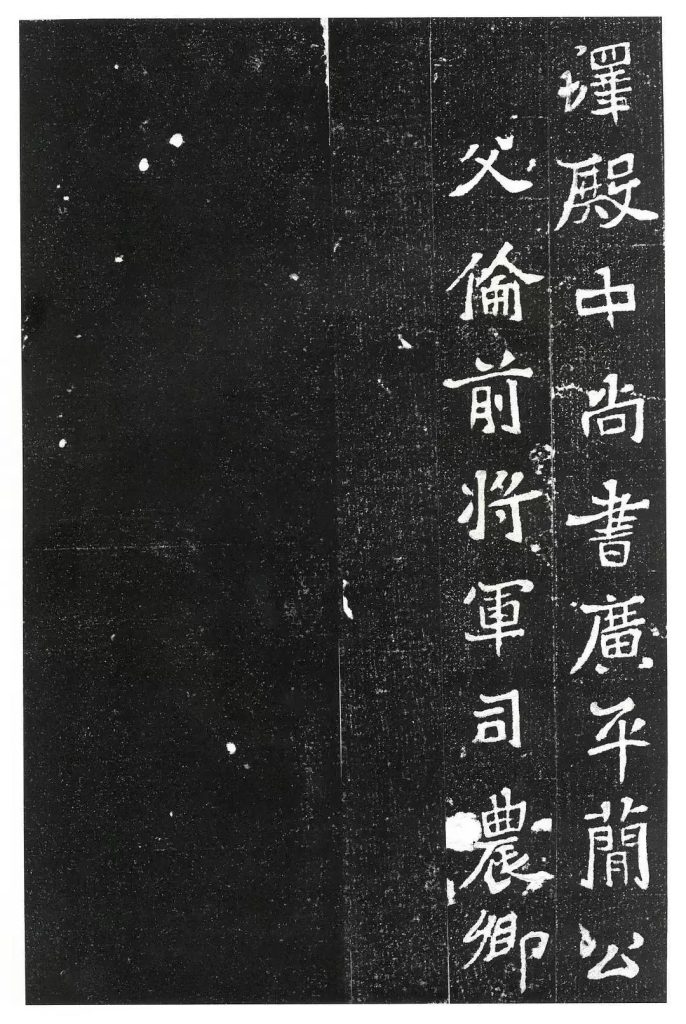 墿殿中尚書廣平簡公
父倫前將軍司農卿